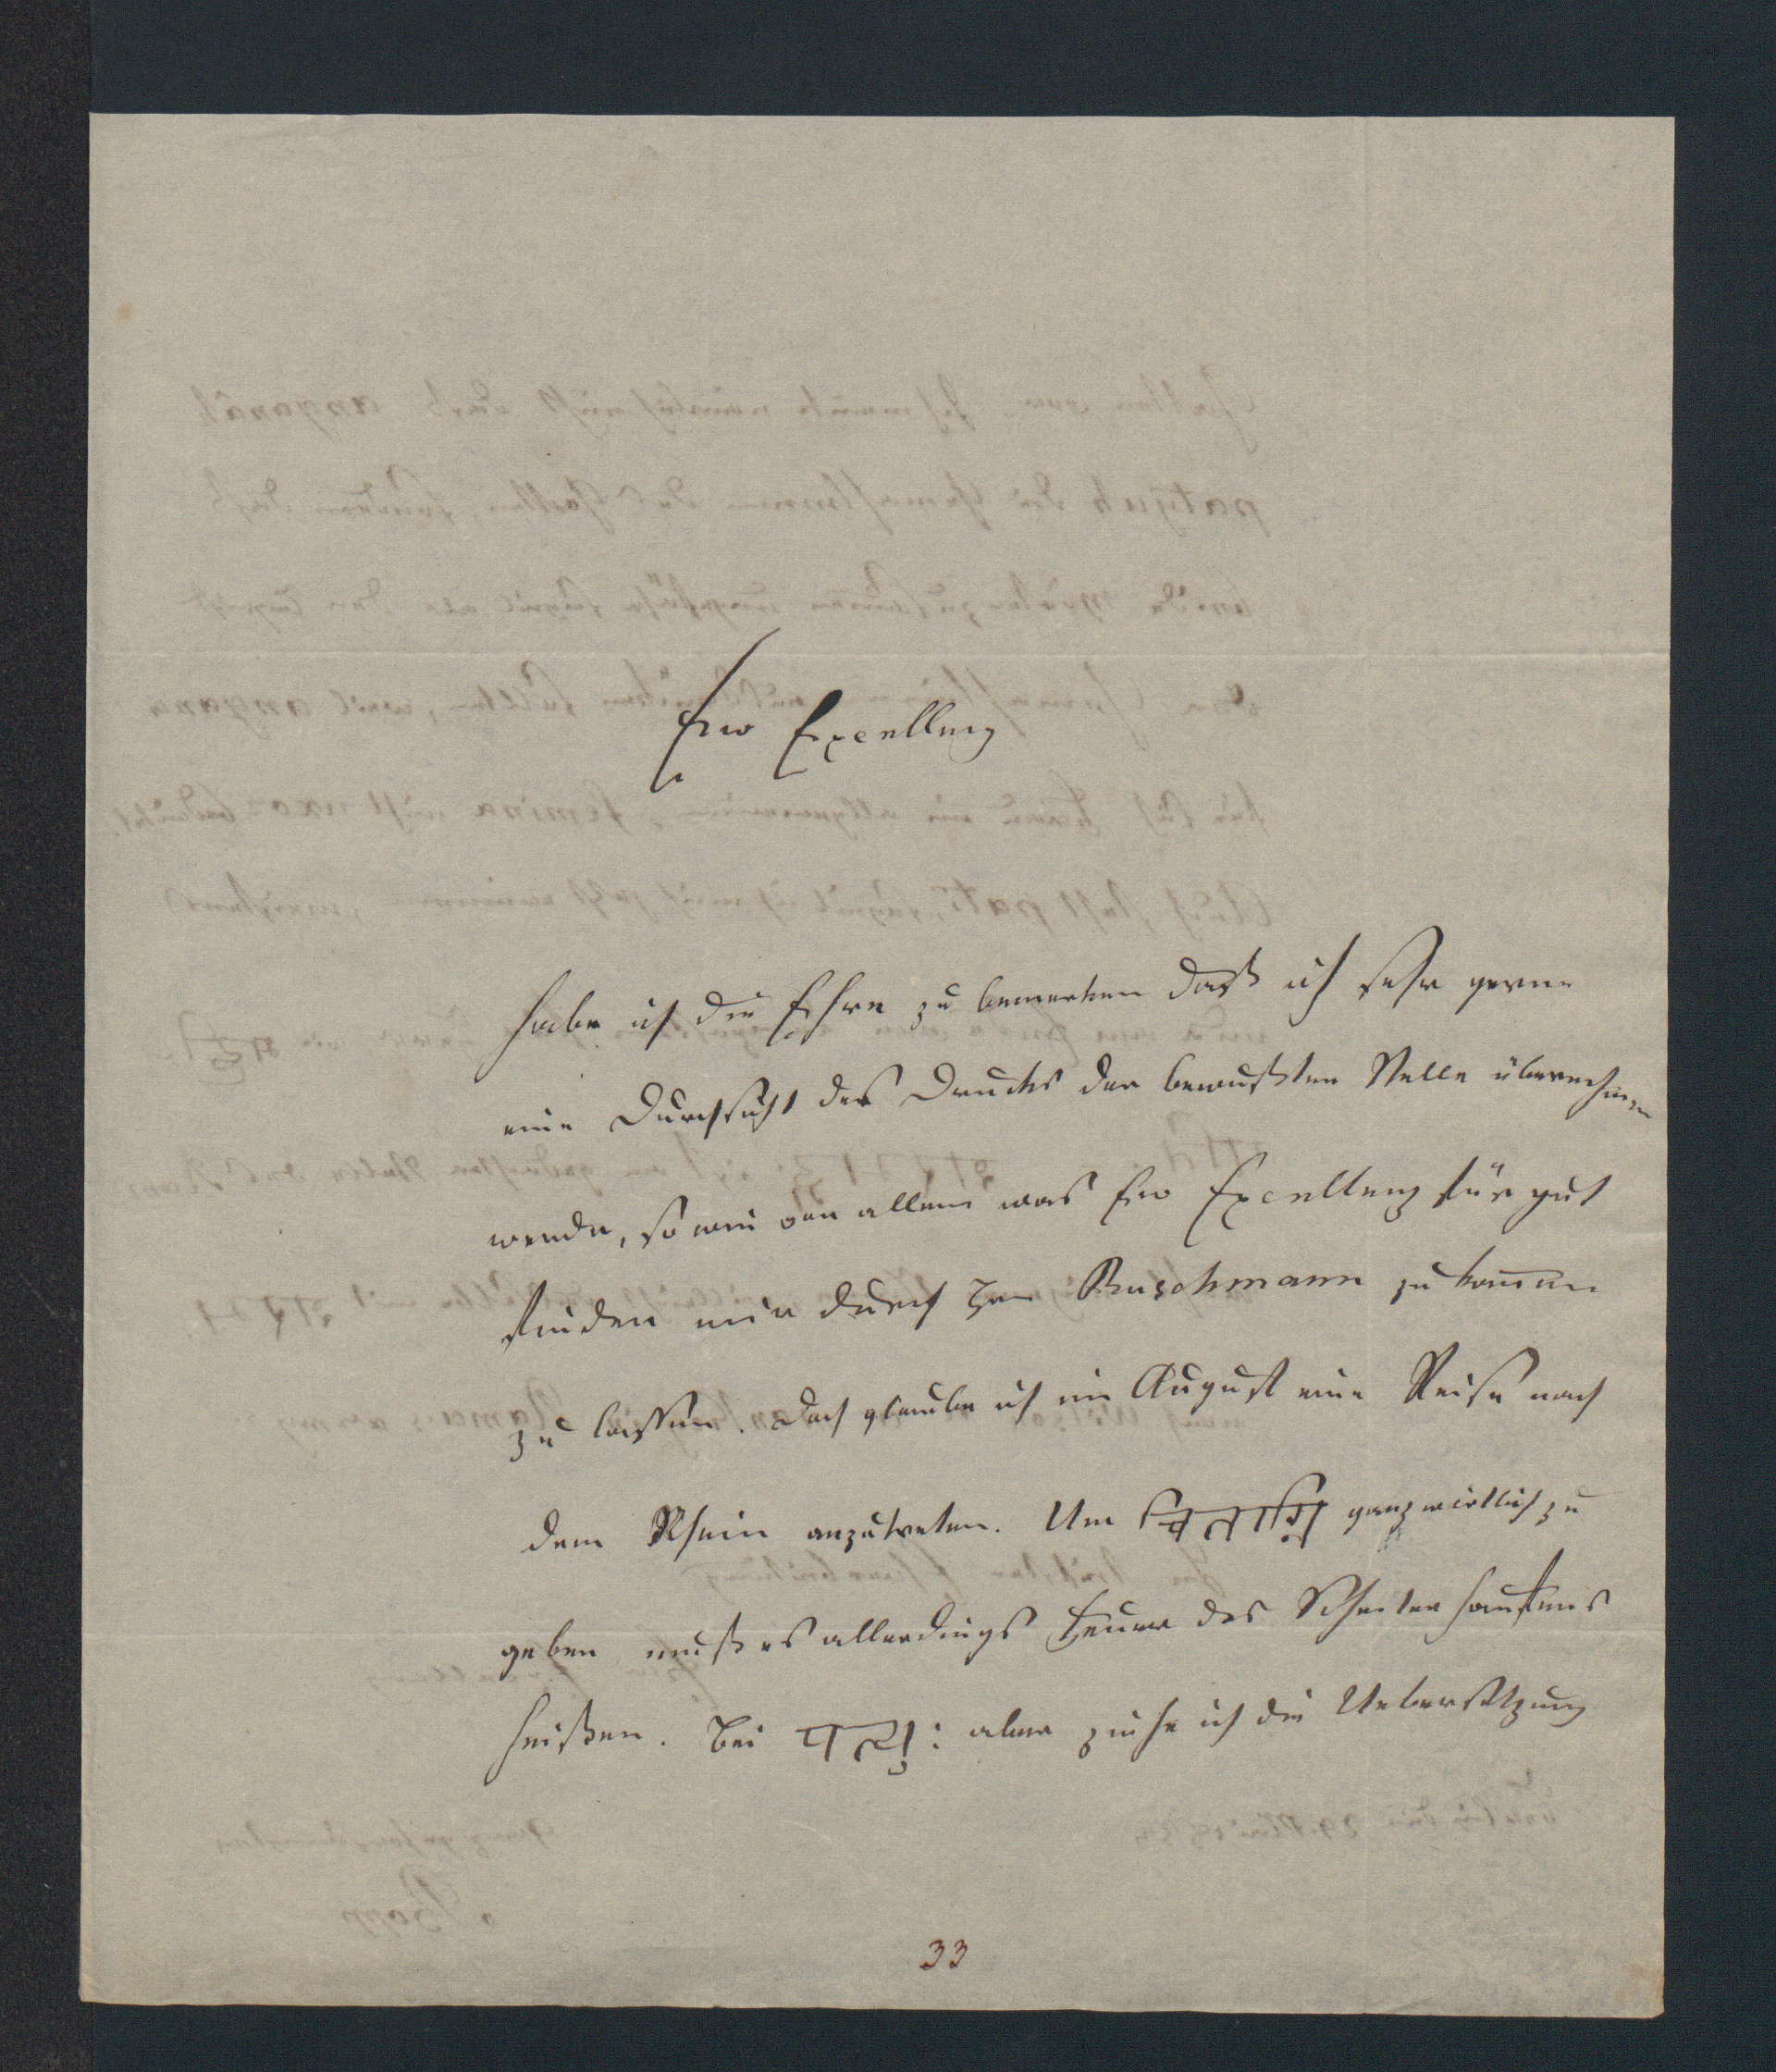 Ew Excellenz
habe ich die Ehre zu bemerken daß ich sehr gerne
eine Durchsicht des Drucks der bewußten Stelle übernehmen
werde, so wie von allem was Ew Excellenz für gut
finden mir durch Hrn Buschmann zu kommen
zu lassen. Doch glaube ich im August eine Reise nach
dem Rhein anzutreten. Um चिताग्निं ganz wörtlich zu
geben muß es allerdings Feuer des Scheiterhaufens
heißen. Bei पत्युः aber ziehe ich die Uebersetzung
33